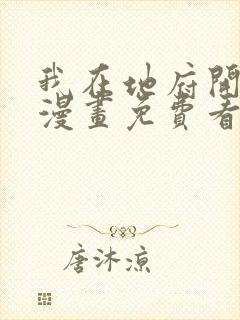 我在地府開
漫畫免費看
唐沐凉